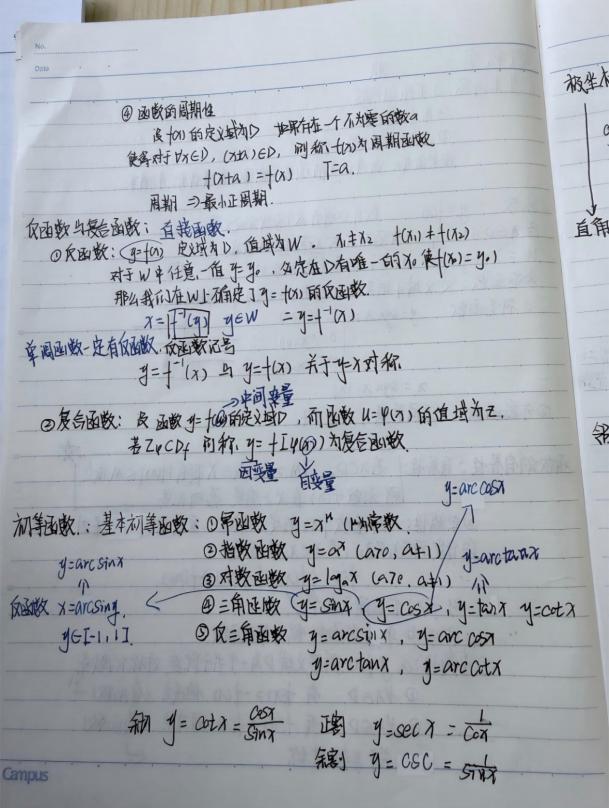 No.
Date
④ 函数的周期性
设 f(x) 的定义域为D 如果存在一个不为零的数a
使得对于∀x∈D, (x±a)∈D, 则称f(x)为周期函数
f(x+a) = f(x) T=a.
周期 ⇒最小正周期.
反函数与复合函数: 直接函数.
①反函数: y=f(x) 定义域为D, 值域为W. x₁≠x₂ f(x₁)≠f(x₂)
对于W中任意一值y=y₀, 必定在D有唯一的x₀使f(x₀)=y₀)
那么我们在W上确定了y=f(x)的反函数.
x=f⁻¹(y) y∈W = y=f⁻¹(x)
单调函数一定有反函数. 反函数记号
y=f⁻¹(x) 与 y=f(x) 关于y=x对称.
→中间变量
②复合函数: 设 函数 y=f(u)的定义域D, 而函数 u=φ(x)的值域为Z.
若Zφ⊂Df 则称 y=f[φ(x)]为复合函数.
因变量 自变量
y=arc cosx
初等函数.: 基本初等函数: ①幂函数 y=x^μ (μ为常数.
y=arc sinx
②指数函数 y=aˣ (a>0, a≠1)
y=arctanx
③对数函数 y=logₐx (a>0, a≠1)
反函数 x=arcsiny.
④三角函数 y=sinx y=cosx, y=tanx y=cotx
y∈[-1,1].
⑤反三角函数 y=arcsinx, y=arc cosx
y=arctanx, y=arc cotx
余切 y=cotx=cosx/sinx 正割 y=sec x = 1/cox
余割 y=csc = 1/sinx
Campus
极坐标
直角